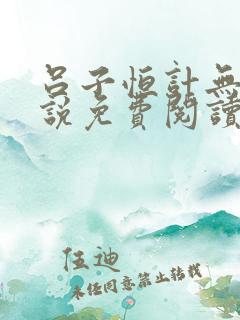 呂子恒計無
說免費閱讀
伍迪
未任同意禁止转载